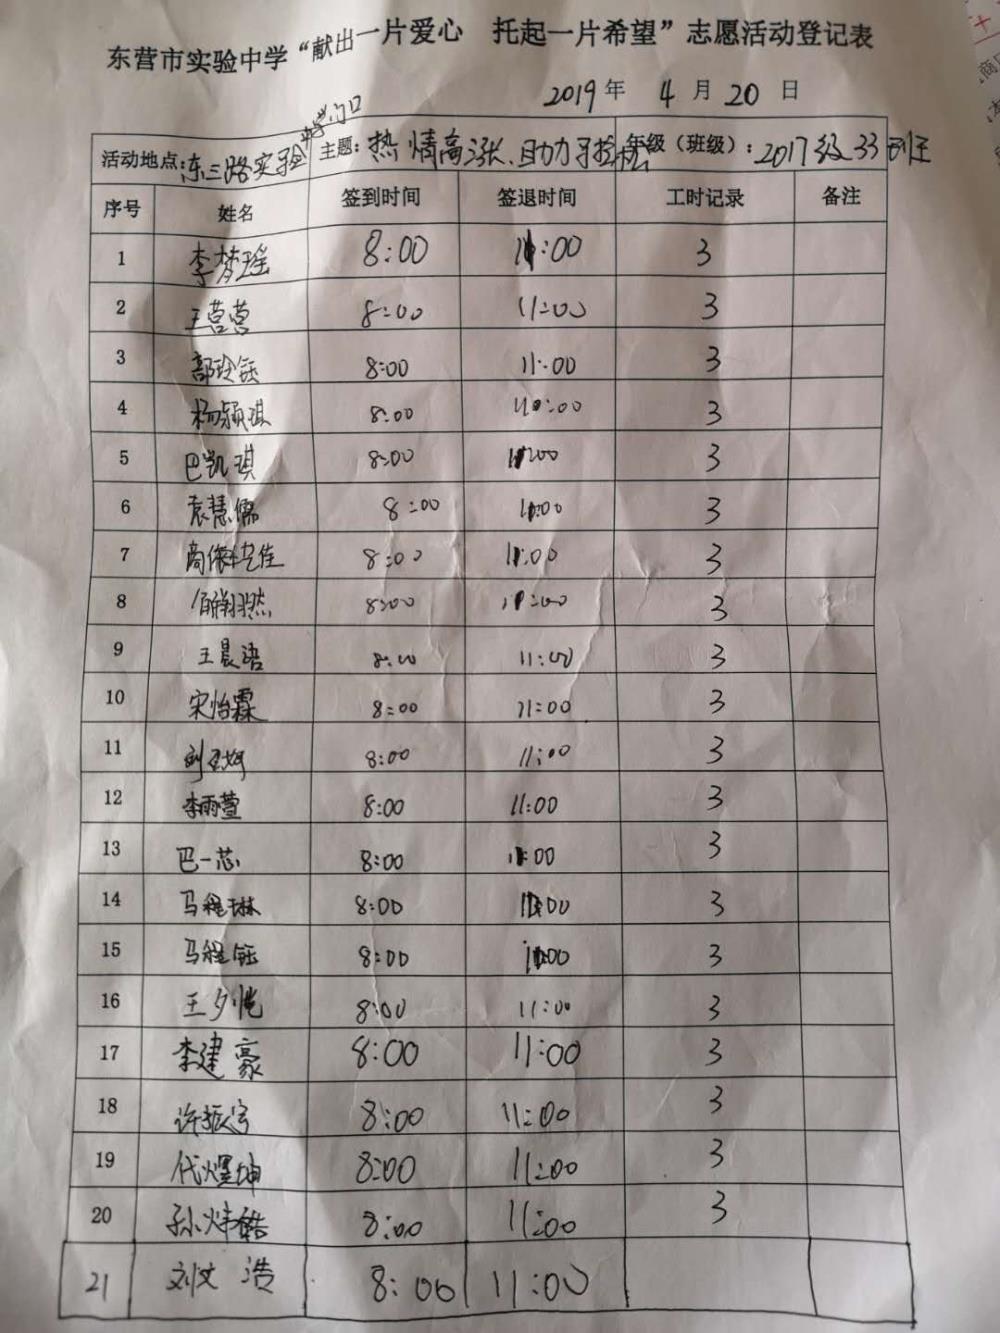 东营市实验中学“献出一片爱心 托起一片希望”志愿活动登记表
2019年 4月20日
活动地点:东三路实验中学门口 主题:热情高涨、助力 年级(班级):2017级33班
序号 姓名 签到时间 签退时间 工时记录 备注
1 李梦瑶 8:00 11:00 3
2 王营营 8:00 11:00 3
3 郭玲钰 8:00 11:00 3
4 杨颖琪 8:00 11:00 3
5 巴凯琪 8:00 11:00 3
6 袁慧儒 8:00 11:00 3
7 8:00 11:00 3
8 8:00 11:00 3
9 王晨语 8:00 11:00 3
10 宋怡霖 8:00 11:00 3
11 8:00 11:00 3
12 李雨萱 8:00 11:00 3
13 巴一芯 8:00 11:00 3
14 马程琳 8:00 11:00 3
15 马程钰 8:00 11:00 3
16 王夕恺 8:00 11:00 3
17 李建豪 8:00 11:00 3
18 许振宇 8:00 11:00 3
19 代煜坤 8:00 11:00 3
20 8:00 11:00 3
21 刘文浩 8:00 11:00